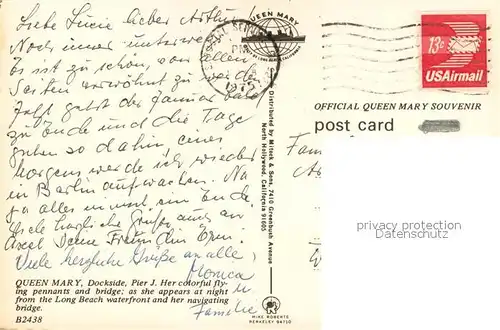 Liebe Lucie lieber Arthur
Noch immer unterwegs.
Es ist zu schön, von allen
Seiten verwöhnt zu werden.
Jetzt geht der Januar bald
zu Ende und die Tage
gehen so dahin, eines
Morgens werde ich wieder
in Berlin aufwachen. Na
ja alles nimmt ein Ende
Viele herzliche Grüße auch an
Axel Deine Freundin
Viele herzliche Grüße an alle,
Monica
u
Familie
QUEEN MARY, Dockside, Pier J. Her colorful fly-
ing pennants and bridge; as she appears at night
from the Long Beach waterfront and her navigating
bridge.
B2438
QUEEN MARY
LONG BEACH, CALIFORNIA
PM
1975
Distributed by Mitock & Sons, 7410 Greenbush Avenue
North Hollywood, California 91605
MIKE ROBERTS
BERKELEY 94710
13c
USAirmail
OFFICIAL QUEEN MARY SOUVENIR
post card
Fam
privacy protection
watermark